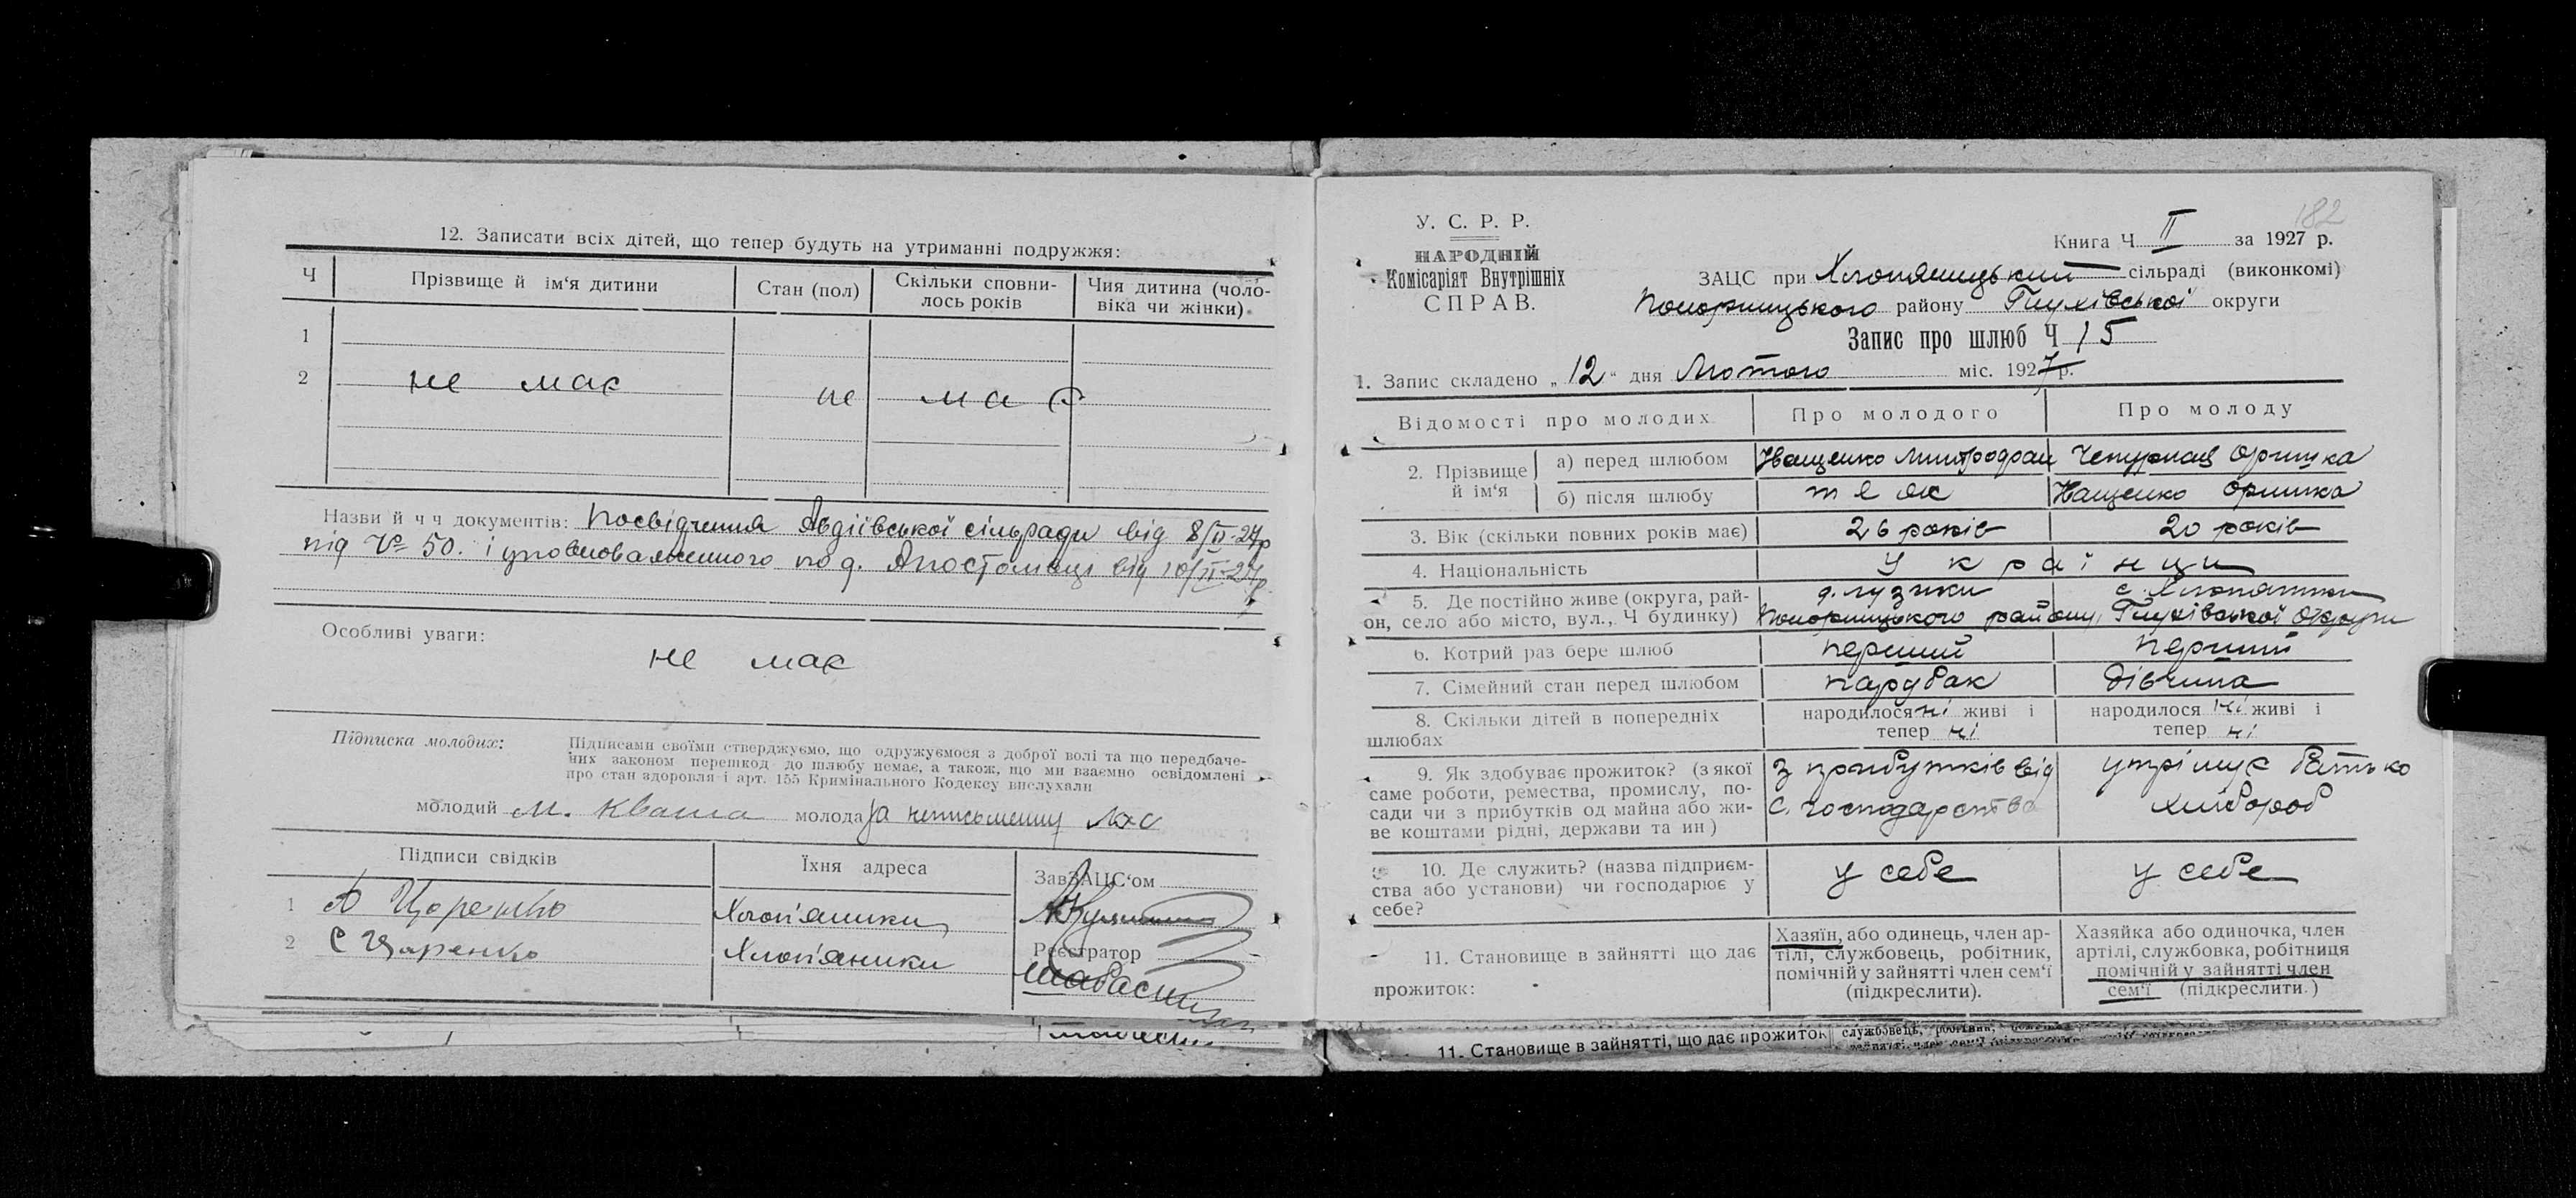 12. Записати всіх дітей, що тепер будуть на утриманні подружжя:
Ч
Прізвище й ім'я дитини
Стан (пол)
Скільки сповни-
лось років
Чия дитина (чоло-
віка чи жінки)
1
2
не має
не має
Назви й ч ч документів: Посвідчення Авдіївської сільради від 8/II-27р
під № 50. і уповноваженного по д. від 10/II-27р.
Особливі уваги:
не має
Підписка молодих:
Підписами своїми стверджуємо, що одружуємося з доброї волі та що передбаче-
них законом перешкод до шлюбу немає, а також, що ми взаємно освідомлені
про стан здоровля і арт. 155 Кримінального Кодексу вислухали
молодий М. Кваша молода за неписьменну
Підписи свідків
Їхня адреса
ЗавЗАЦС'ом
1 Царенко
Хлоп'яники
Реєстратор
2 С Царенко
Хлоп'яники
182
У. С. Р. Р.
НАРОДНІЙ
Комісаріят Внутрішніх
СПРАВ.
Книга Ч II за 1927 р.
ЗАЦС при Хлопяницький сільраді (виконкомі)
Понорницького району Глухівської округи
Запис про шлюб Ч 15
1. Запис складено „12" дня Лютого міс. 1927 р.
Відомості про молодих
Про молодого
Про молоду
2. Прізвище й ім'я
а) перед шлюбом
Іващенко Митродран
Чепурная Оришка
б) після шлюбу
т е як
Іващенко Оришка
3. Вік (скільки повних років має)
26 років
20 років
4. Національність
Українци
5. Де постійно живе (округа, рай-
он, село або місто, вул., Ч будинку)
д. Лузики
с. Хлопяники
Понорницького району, Глухівської Округи
6. Котрий раз бере шлюб
перший
перший
7. Сімейний стан перед шлюбом
парубак
дівчина
8. Скільки дітей в попередніх
шлюбах
народилося ні живі і
тепер ні
народилося ні живі і
тепер ні
9. Як здобуває прожиток? (з якої
саме роботи, ремества, промислу, по-
сади чи з прибутків од майна або жи-
ве коштами рідні, держави та ин)
з прибутків від
с. господарства
утрімує батько
хлібороб
10. Де служить? (назва підприєм-
ства або установи) чи господарює у
себе?
у себе
у себе
11. Становище в зайнятті що дає
прожиток:
Хазяїн, або одинець, член ар-
тілі, службовець, робітник,
помічній у зайнятті член сем'ї
(підкреслити).
Хазяйка або одиночка, член
артілі, службовка, робітниця
помічній у зайнятті член
сем'ї (підкреслити.)
11. Становище в зайнятті, що дає прожиток